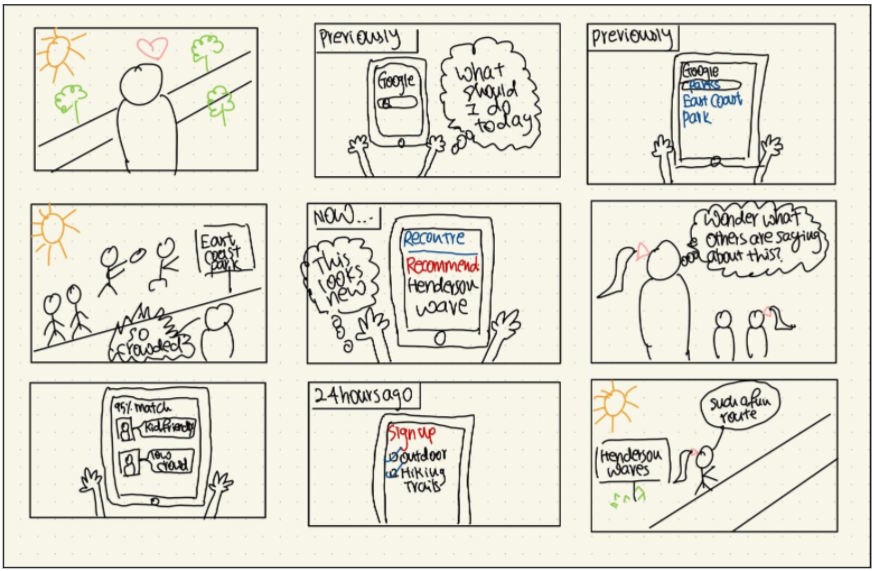 Previously
Google
What
should
I do
today
Previously
Google
Parks
East Coast
Park
East
Coast
Park
so
crowded
NOW...
This
looks
new
Recoutre
Recommend
Henderson
wave
Wonder what
others are saying
about this?
95% match
Kid friendly
low
crowd
24 hours ago
Sign up
outdoor
Hiking
Trails
such a fun
route
Henderson
waves